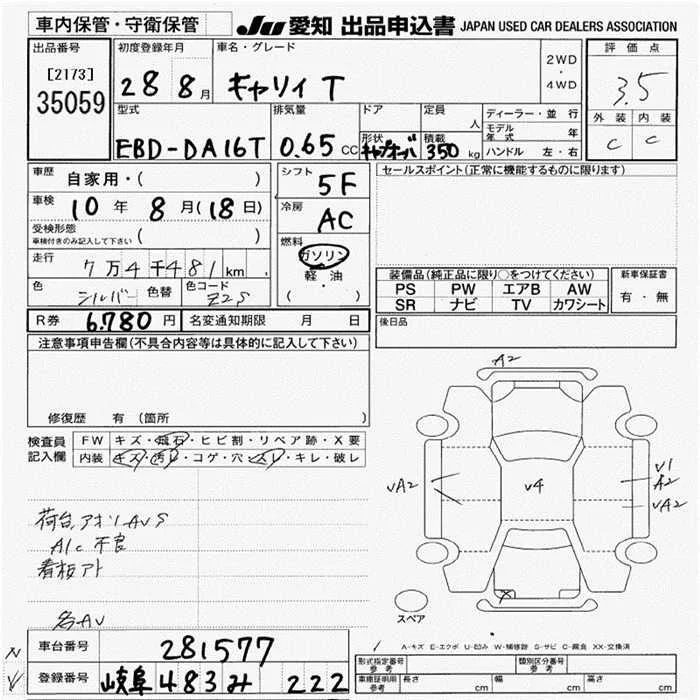 車内保管・守衛保管
JU 愛知 出品申込書 JAPAN USED CAR DEALERS ASSOCIATION
出品番号
[2173]
35059
初度登録年月
28 8月
車名・グレード
キャリィ T
2WD
・
4WD
評価点
3.5
外装 内装
C C
型式
EBD-DA16T
排気量
0.65 CC
ドア
形状
定員
人
積載
350 kg
ディーラー・並行
モデル年式 年
ハンドル 左・右
車歴
自家用・( )
車検
10年 8月(18日)
受検形態
車検付きのみ記入して下さい ( )
走行
7万4千481km
色
シルバー
色替
色コード
Z2S
シフト
5F
冷房
AC
燃料
ガソリン
軽油
( ・ )
セールスポイント(正常に機能するものに限ります)
装備品(純正品に限り○をつけてください)
PS PW エアB AW
SR ナビ TV カワシート
新車保証書
有・無
後日品
R券 6,780円
名変通知期限 月 日
注意事項申告欄(不具合内容等は具体的に記入して下さい)
修復歴 有(箇所 )
検査員記入欄
FW キズ・飛石・ヒビ割・リペア跡・X要
内装 キズ・汚レ・コゲ・穴・スレ・キレ・破レ
荷台,アオリAVS
A/C 不良
看板アト
各AV
A2
VA2
V4
V1
A2
VA2
X
スペア
A-キズ E-エクボ U-凹み W-補修跡 S-サビ C-腐食 XX-交換済
車台番号 281577
登録番号 岐阜 483 み 222
型式指定番号 参考
類別区分番号 参考
車庫証明用 参考
長さ cm
幅 cm
高さ cm